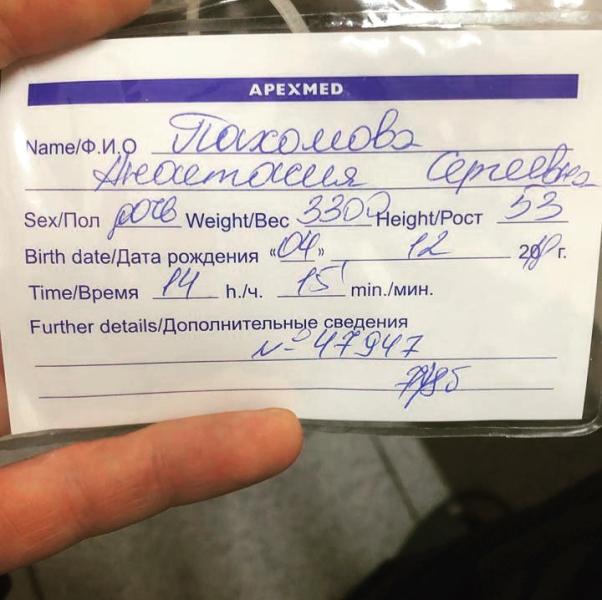 APEXMED
Name/Ф.И.О Пахомова
Анастасия Сергеевна
Sex/Пол Weight/Вес 3300 Height/Рост 53
Birth date/Дата рождения «04» 12 г.
Time/Время 14 h./ч. 15 min./мин.
Further details/Дополнительные сведения
№ 47947